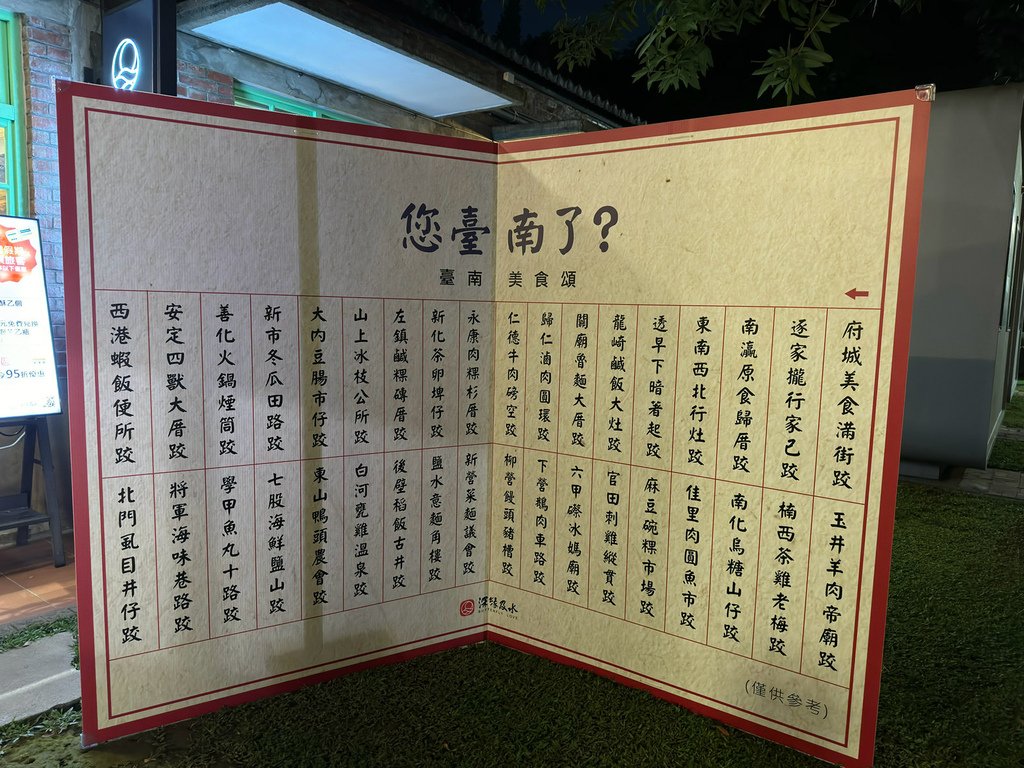 您臺南了?
臺南美食頌
府城美食滿街跤
逐家攏行家己跤
南瀛原食歸厝跤
東南西北行灶跤
透早下暗著起跤
龍崎鹹飯大灶跤
關廟魯麵大厝跤
歸仁滷肉圓環跤
仁德牛肉磅空跤
永康肉粿杉厝跤
新化茶卵埤仔跤
左鎮鹹粿磚厝跤
山上冰枝公所跤
大內豆腸市仔跤
新市冬瓜田路跤
善化火鍋煙筒跤
安定四獸大厝跤
西港蝦飯便所跤
玉井羊肉帝廟跤
楠西茶雞老梅跤
南化烏糖山仔跤
佳里肉圓魚市跤
麻豆碗粿市場跤
官田刺雞縱貫跤
六甲礤冰媽廟跤
下營鵝肉車路跤
柳營饅頭豬槽跤
新營菜麵議會跤
鹽水意麵角樓跤
後壁稻飯古井跤
白河甕雞溫泉跤
東山鴨頭農會跤
七股海鮮鹽山跤
學甲魚丸十路跤
將軍海味巷路跤
北門虱目井仔跤
深緣及水
(僅供參考)
95折優惠